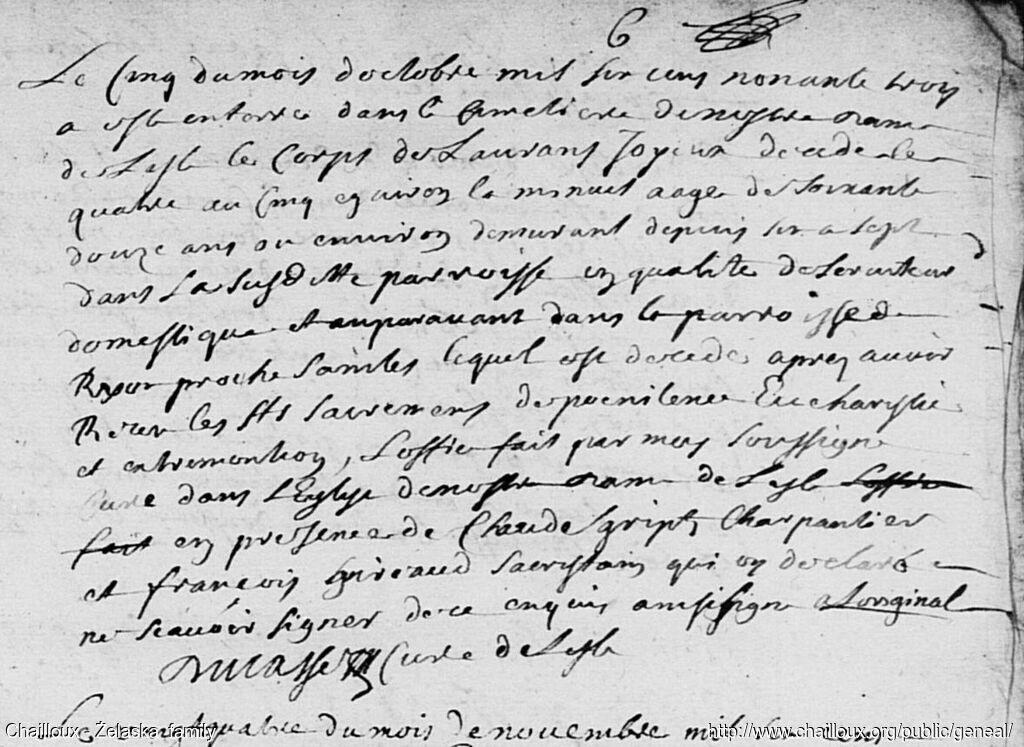 6
Le Cinq du mois d'octobre mil six cens nonante trois
a este enterré dans le Cimetiere de nostre dame
de Lisle le Corps de Laurans Joyeux decedé le
quatre au Cinq environ la minuit aagé de soixante
douze ans ou environ demurant depuis six a sept
dans La susditte parroisse en qualité de serviteur
domestique et auparavant dans la parroisse de
proche Saintes lequel est decedé apres avoir
Receu les Sts Sacremens de poenitence Eucharystie
et extremontion, L'office fait par moy soussigne
Curé dans L'Eglise de nostre dame de Lisle L'office
fait en pressence de Claude Charpantier
et françois Sacristain qui on declaré
ne scavoir signer de ce enquis ainsi signe a Loriginal
Ducasse Curé de Lisle
Le vingt quatre du mois de novembre mil six cens
Chailloux - Zelaska family
http://www.chailloux.org/public/geneal/